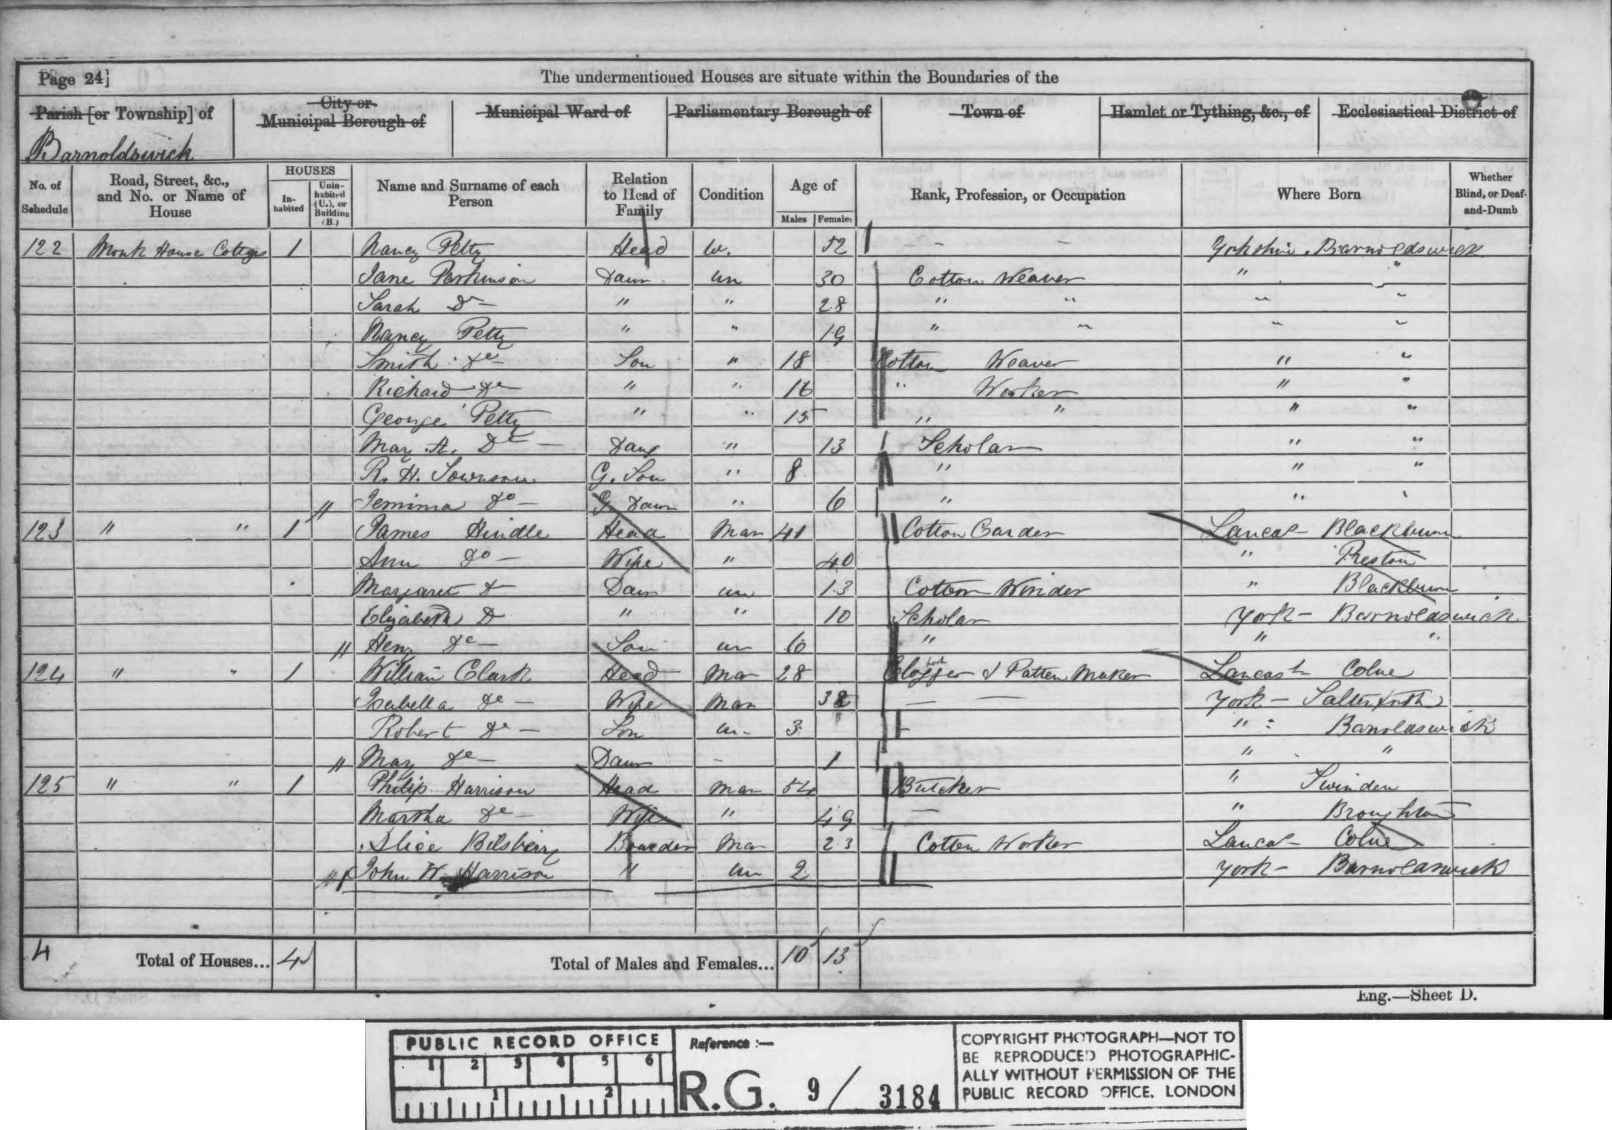 Page 24]
The undermentioned Houses are situate within the Boundaries of the
Parish [or Township] of
City or Municipal Borough of
Municipal Ward of
Parliamentary Borough of
Town of
Hamlet or Tything, &c., of
Ecclesiastical District of
Barnoldswick
No. of Schedule
Road, Street, &c., and No. or Name of House
HOUSES
In-habited
Unin-habited (U.), or Building (B.)
Name and Surname of each Person
Relation to Head of Family
Condition
Age of
Males
Females
Rank, Profession, or Occupation
Where Born
Whether Blind, or Deaf-and-Dumb
122 Monk House Cottages 1 Nancy Petty Head W. 52 - - Yorkshire Barnoldswick
Jane Parkinson Daur un 30 Cotton Weaver " "
Sarah Do " " 28 " " " "
Nancy Petty " " 19 " " " "
Smith do Son " 18 Cotton Weaver " "
Richard do " " 16 " Worker " "
George Petty " " 15 " " " "
Mary A. Do Daur " 13 Scholar " "
R. H. G. Son " 8 " " "
Jemima do G Daur " 6 " " "
123 " " 1 James Hindle Head Mar 41 Cotton Carder Lancas Blackburn
Ann do Wife " 40 " Preston
Margaret Do Daur un 13 Cotton Winder " Blackburn
Elizabeth Do " " 10 Scholar York - Barnoldswick
Heny do Son un 6 " " "
124 " " 1 William Clark Head Mar 28 Clogger & Patten Maker Lancash Colne
Isabella do Wife Mar 38 York - Salterforth
Robert do Son un 3 " Barnoldswick
Mary do Daur - 1 " "
125 " " 1 Philip Harrison Head Mar 54 Butcher " Swinden
Martha do Wife " 49 - " Broughton
Alice Boarder Mar 23 Cotton Worker Lancas Colne
John W. Harrison " un 2 York - Barnoldswick
4 Total of Houses... 4 Total of Males and Females... 10 13
Eng.—Sheet D.
PUBLIC RECORD OFFICE
1 2 3 4 5 6
1 2
Reference :—
R.G. 9/3184
COPYRIGHT PHOTOGRAPH—NOT TO
BE REPRODUCED PHOTOGRAPHIC-
ALLY WITHOUT PERMISSION OF THE
PUBLIC RECORD OFFICE, LONDON